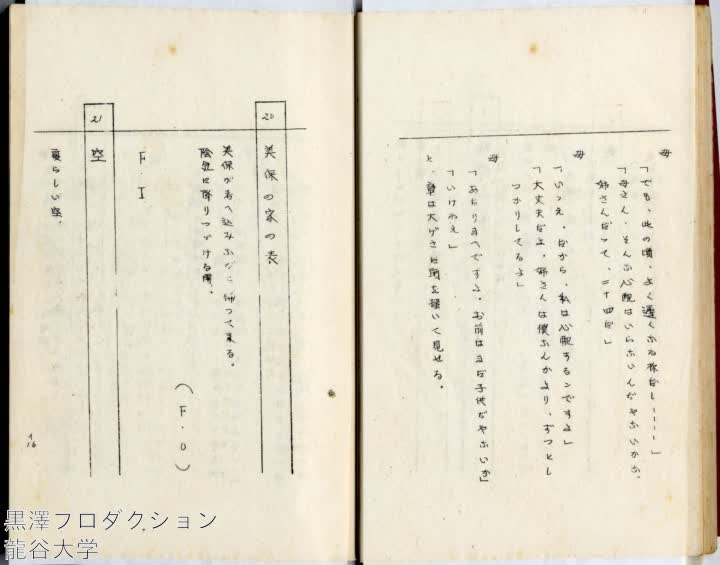 母
「でも、此の頃、よく遅くなる様だし————」
「母さん、そんな心配はいらないんぢやないかな、
姉さんだつて、二十四だ」
母
「いゝえ、だから、私は心配するンですよ」
「大丈夫だよ、姉さんは僕なんかより、ずつとし
つかりしてるよ」
母
「あたりまへですよ、お前はまだ子供ぢやないか」
「いけねえ」
と、章は大ゲさに頭を掻いて見せる。
20
美保の家の表
美保が考へ込みながら帰つて来る。
陰気に降りつづける雨。
(F・O)
F・I
21
空
夏らしい空。
A16
黒澤プロダクション
龍谷大学